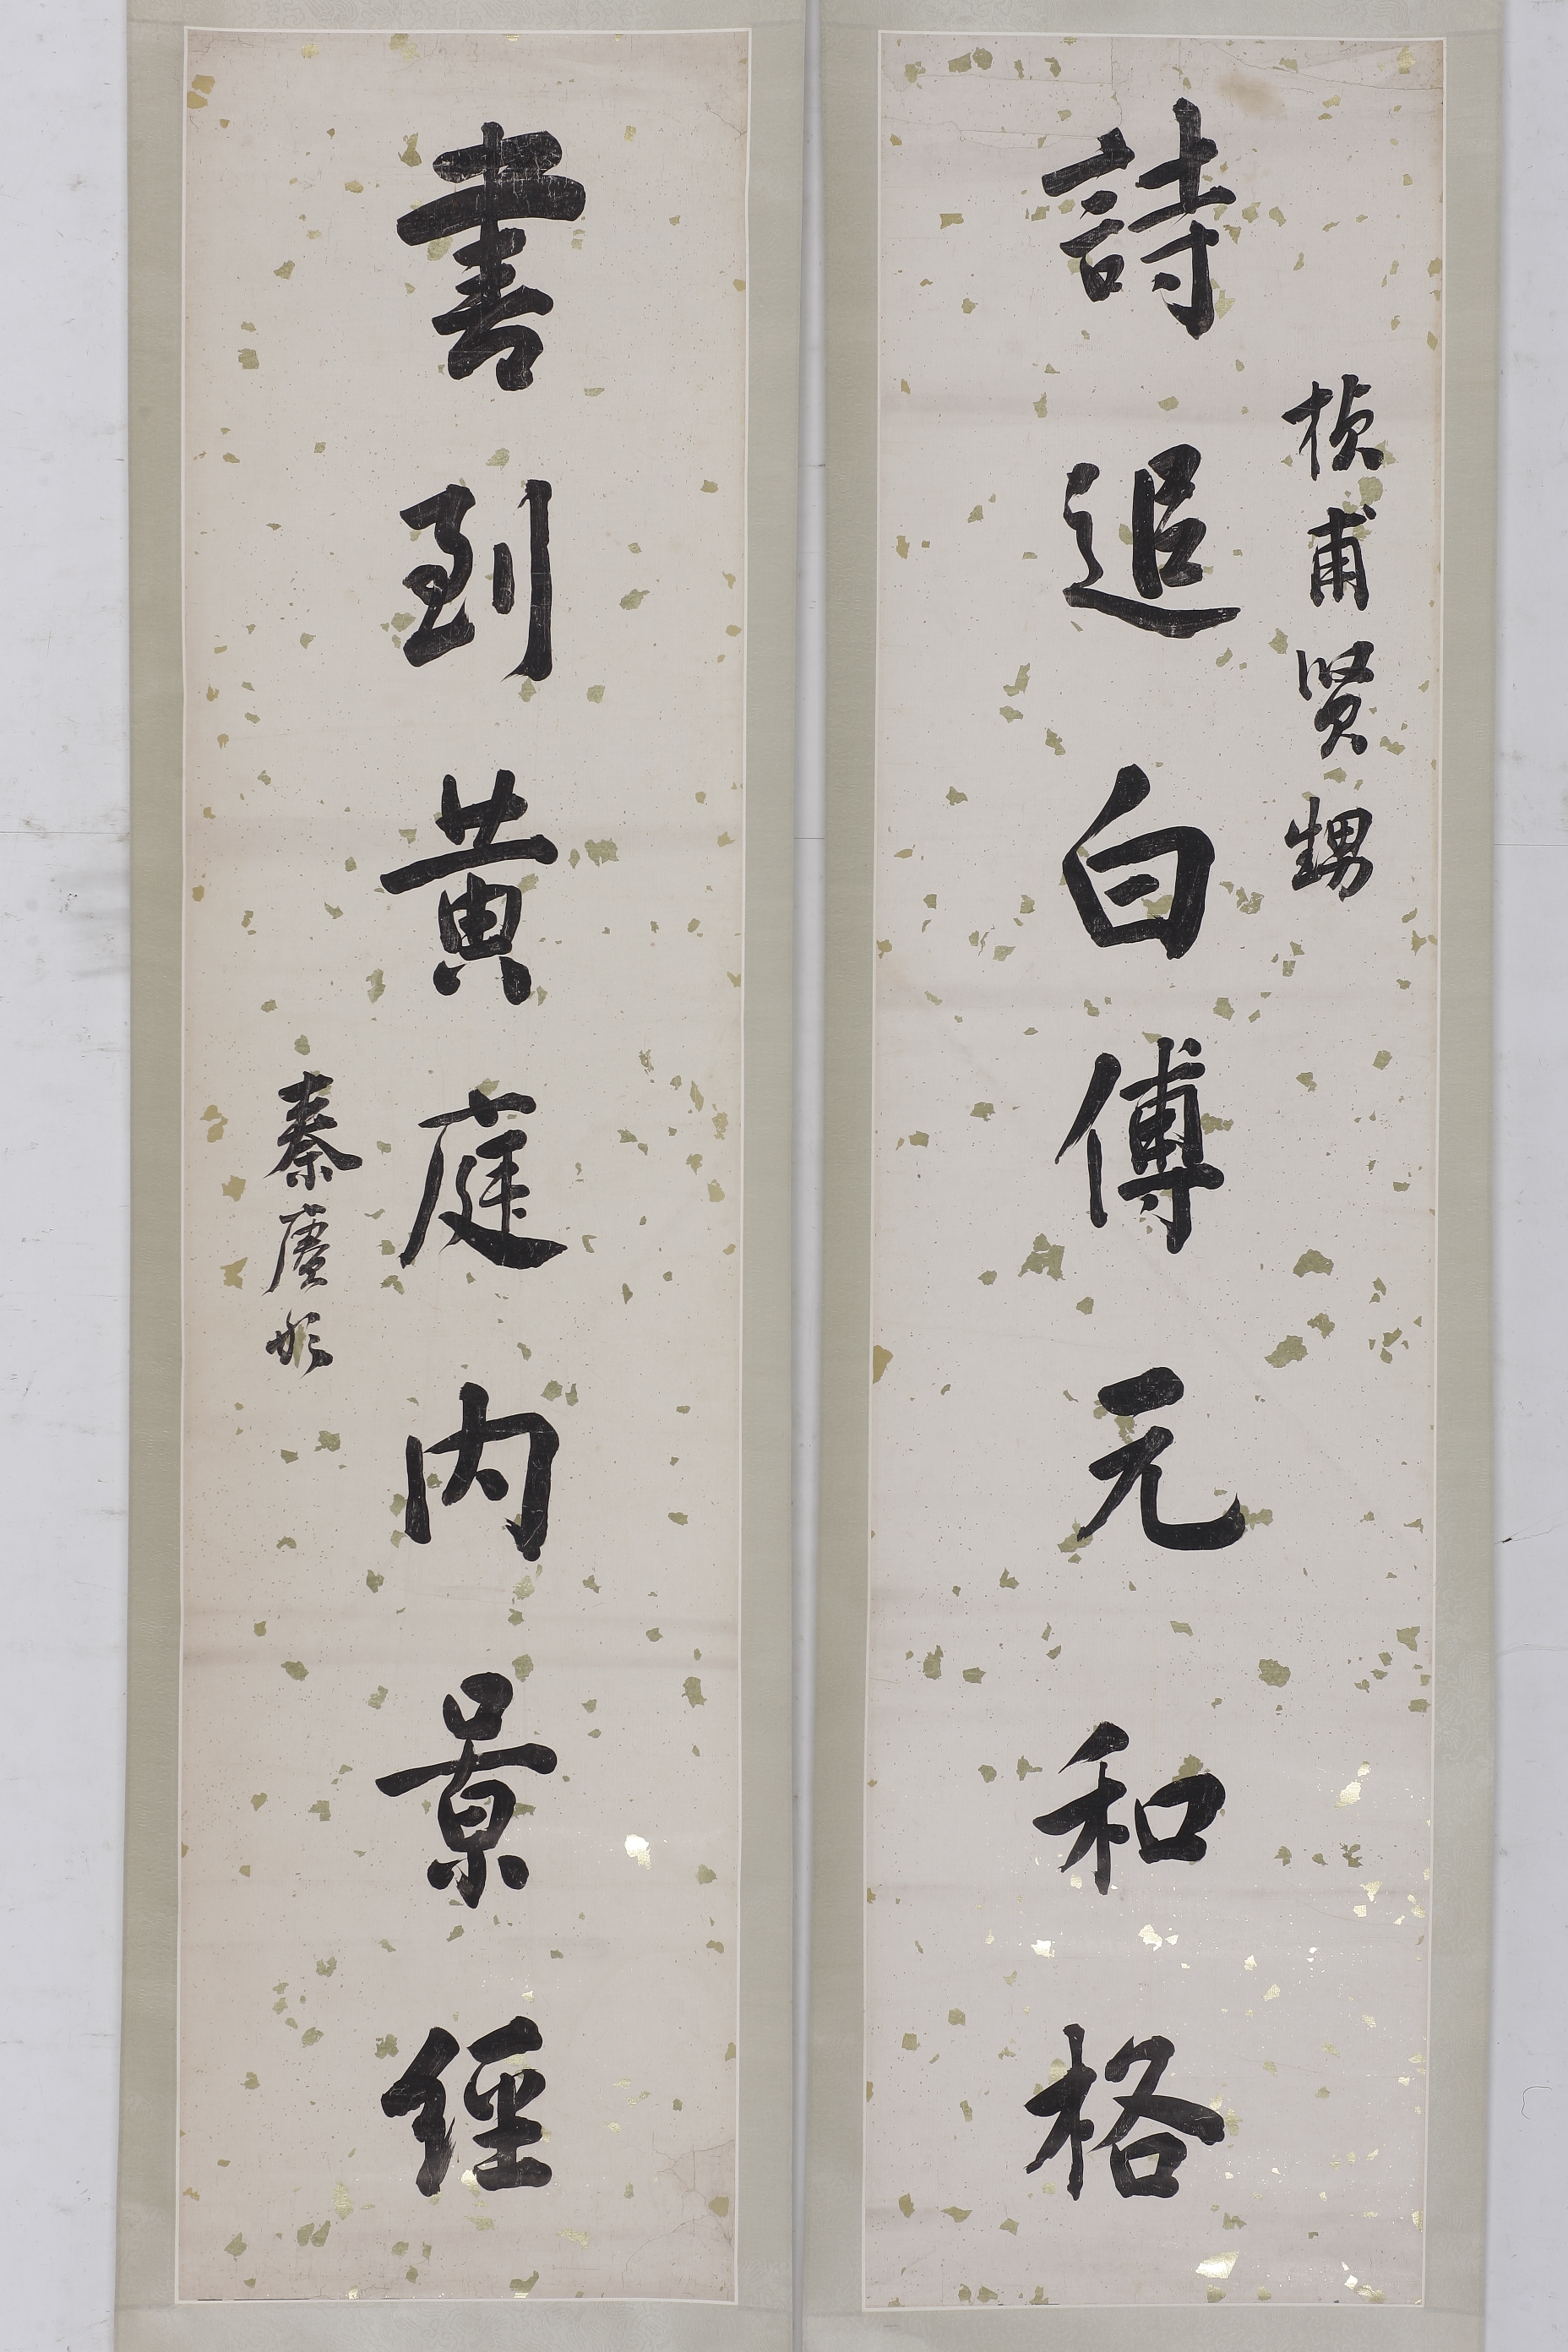 詩追白傅元和格
楨甫賢甥
書到黄庭内景經
秦賡彤